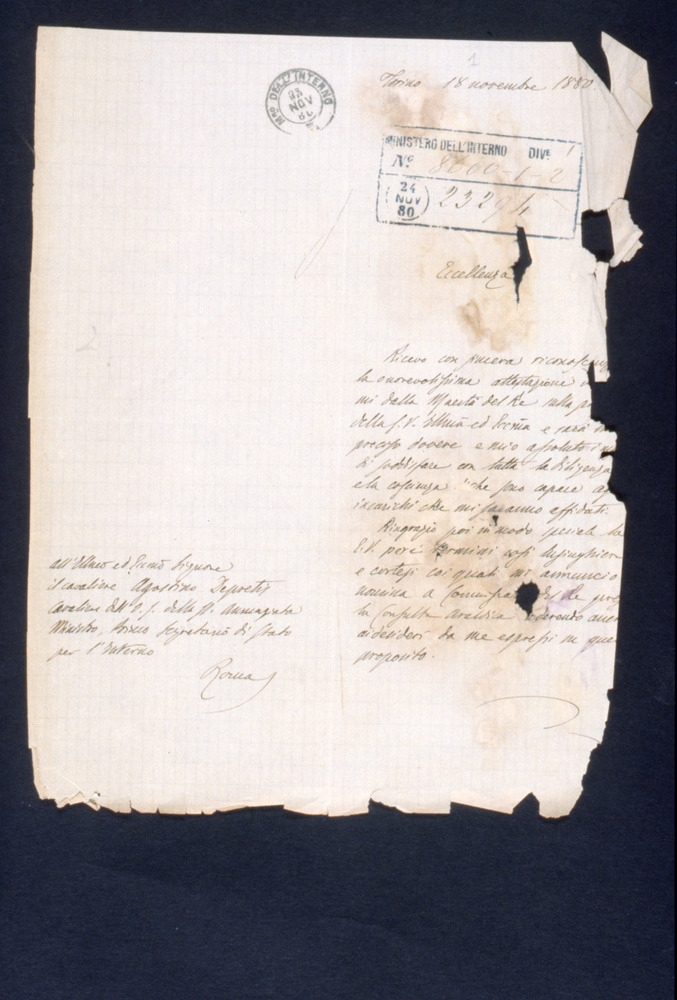 1
Torino 18 novembre 1880.
Mro DELL'INTERNO
23
NOV
80
MINISTERO DELL'INTERNO DIVe 1
No 8000-1-2
24
NOV
80
23294
Eccellenza
2
Ricevo con sincera
la onorevolissima attestazione
mi dalla Maestà del Re sulla
della S. V. Illma ed Eccma e sarà
preciso dovere e mio assoluto
di soddisfare con tutta la diligenza
e la coscienza che
incarichi che mi saranno affidati.
Ringrazio poi in modo speciale la
E. V. pei termini così
e cortesi coi quali mi annunciò
nomina a del Re
la Consulta Araldica aderendo
ai desideri da me espressi in
proposito.
all'Illmo ed Eccmo Signore
il cavaliere Agostino Depretis
Cavaliere dell'O. S. della SS. Annunziata
Ministro, Primo Segretario di Stato
per l'Interno
Roma